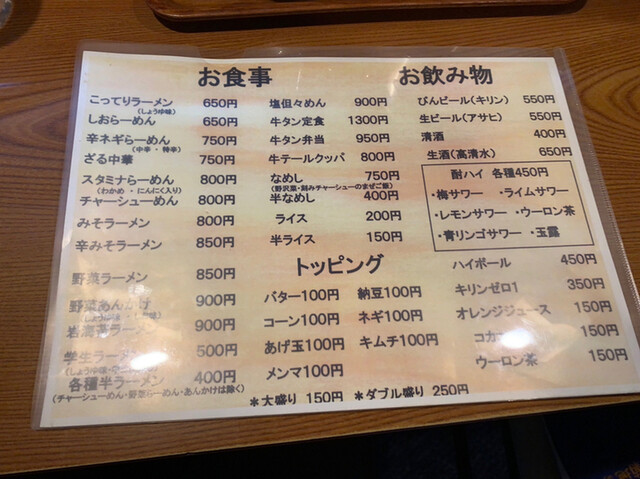 お食事
こってりラーメン 650円
(しょうゆ味)
しおらーめん 650円
辛ネギらーめん 750円
(中辛・特辛)
ざる中華 750円
スタミナらーめん 800円
(わかめ・にんにく入り)
チャーシューめん 800円
みそラーメン 800円
辛みそラーメン 850円
野菜ラーメン 850円
野菜あんかけ 900円
岩海苔ラーメン 900円
学生ラーメン 500円
各種半ラーメン 400円
(チャーシューめん・野菜らーめん・あんかけは除く)
塩但々めん 900円
牛タン定食 1300円
牛タン弁当 950円
牛テールクッパ 800円
なめし 750円
(野沢菜・刻みチャーシューのまぜご飯)
半なめし 400円
ライス 200円
半ライス 150円
トッピング
バター100円 納豆100円
コーン100円 ネギ100円
あげ玉100円 キムチ100円
メンマ100円
*大盛り 150円 *ダブル盛り 250円
お飲み物
びんビール(キリン) 550円
生ビール(アサヒ) 550円
清酒 400円
生酒(高清水) 650円
酎ハイ 各種450円
・梅サワー ・ライムサワー
・レモンサワー ・ウーロン茶
・青リンゴサワー ・玉露
ハイボール 450円
キリンゼロ1 350円
オレンジジュース 150円
コカ 150円
ウーロン茶 150円